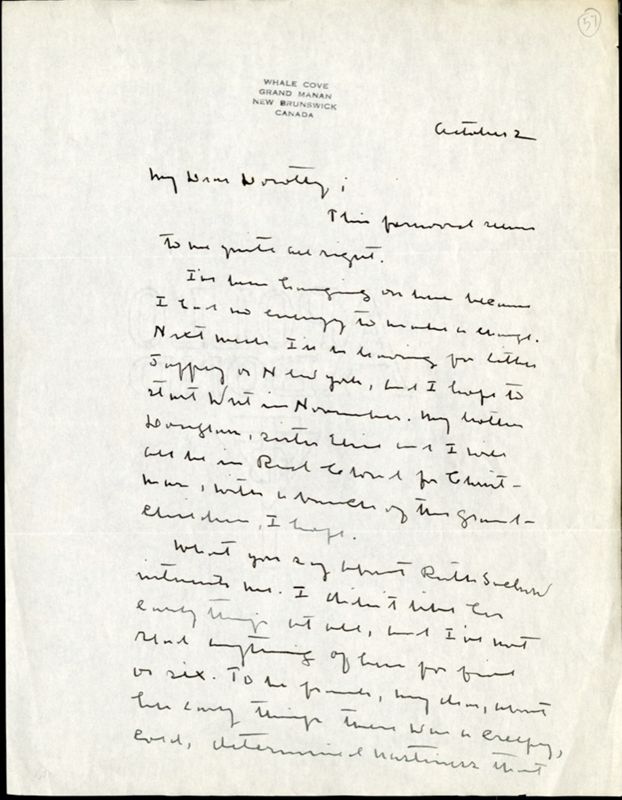 57
WHALE COVE
GRAND MANAN
NEW BRUNSWICK
CANADA
October 2
My Dear Dorothy;
This foreword seems
to me quite all right.
I've been hanging on here because
I had no energy to make a change.
Next week I'll be leaving for either
Jaffrey or New York, and I hope to
start West in November. My brother
Douglass, sister Elsie and I will
all be in Red Cloud for Christ-
mas, with a bunch of the grand-
children, I hope.
What you say about Ruth Suckow
interests me. I didn't like her
early things at all, and I've not
read anything of hers for five
or six. To be frank, my dear, about
her early things there was a creepy,
cold, determined nastiness that